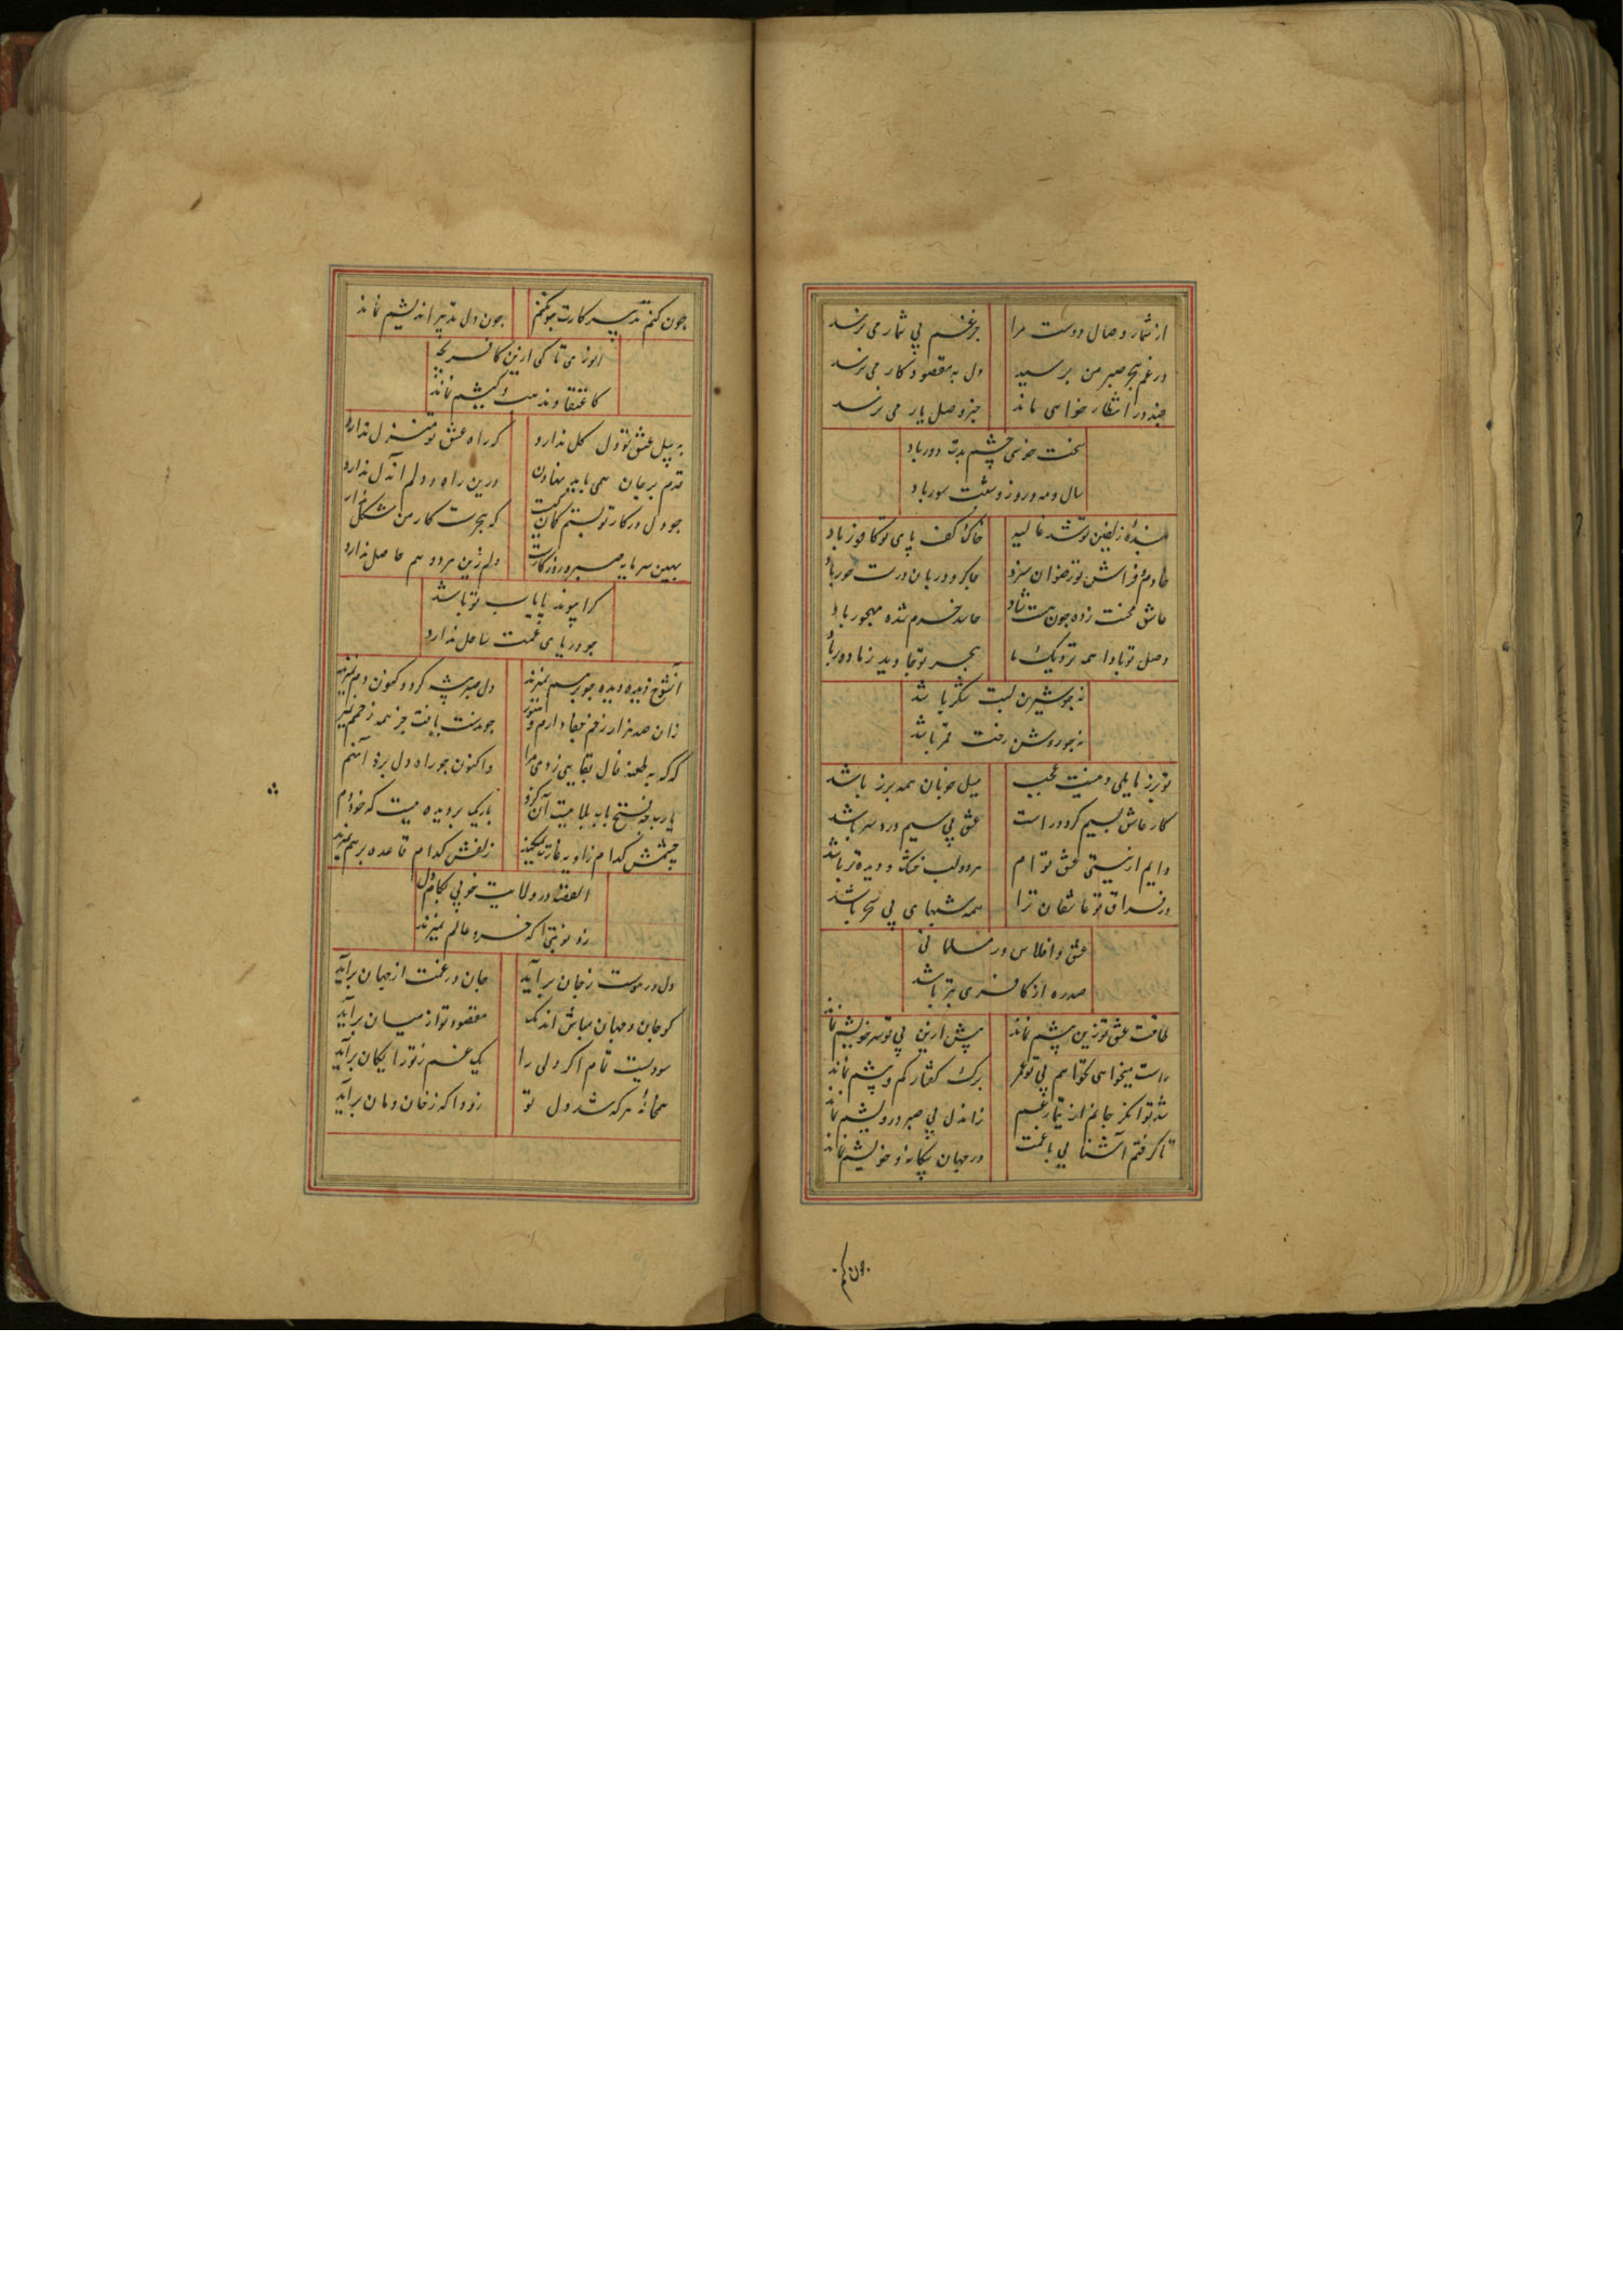 از شمار وصال دوست مرا جز غم بی شمار می نرسد
در غم هجر صبر من برسید دل به مقصود کار می نرسد
چند در انتظار خواهی ماند جز وصل یار می نرسد
سخت خوشی چشم بدت دور باد
سال و مه و روز و شبت سور باد
بنده زلفین تو شد غالیه خاک کف پای تو کافور باد
خادم و فراش تو رضوان سزد چاکر و دربان درت حور باد
عاشق محنت زده چون هست شاد حاسد خرم شده مهجور باد
وصل تو بادا همه نزدیک ما هجر تو جاوید ز ما دور باد
نه چو شیرین لبت شکر باشد
نه چو روشن رخت قمر باشد
تو بزر مایلی و نیست عجب میل خوبان همه بزر باشد
کار عاشق بسیم گردد راست عشق بی سیم درد سر باشد
دایم از نیستی عشق توام هر دو لب خشک و دیده تر باشد
در فراق تو عاشقان ترا همه شبهای بی سحر باشد
عشق و افلاس در مسلمانی
صد ره از کافری بتر باشد
طاقت عشق تو زین پیشم نماند پیش ازین بی تو سر خویشم نماند
راست میخواهی نخواهم بی تو عمر برک گفتار کم و بیشم نماند
شد توانگر جانم از تیمار غم زان دل بی صبر درویشم نماند
تا گرفتم آشنایی با غمت در جهان بیگانه و خویشم نماند
چون کنم تدبیر کارت چون کنم چون دل تدبیر اندیشم نماند
انوری تا کی ازین کافر بچه
کاعتقاد و مذهب و کیشم نماند
به بیل عشق تو دل گل ندارد که راه عشق تو منزل ندارد
قدم بر جان همی باید نهادن درین راه و دلم آن دل ندارد
چو دل در کار تو بستم گمان نیست که هجرت کار من مشکل ندارد
بهین سرمایه صبر و روزگارت دلم زین هر دو هم حاصل ندارد
کرا پیوند پایاب تو باشد
چو دریای غمت ساحل ندارد
آن شوخ دیده دیده چو بر هم نمیزند دل صبر پیشه کرد و کنون دم نمیزند
زان صد هزار زخم جفا دارم و هنوز چون دست یافت جز همه زخمم نمیزند
که که به طعنه فال بقایی زدی مرا واکنون چو راه دل بزد آن هم
یارب چه فتح باب بلا نیست آن کزو باریک بر دیده نیست که خود نم
چشمش کدام زاویه غارت نمیکند زلفش کدام قاعده بر هم نمیزند
القصه در ولایت خوبی بکام دل
زد نوبتی که خسرو عالم نمیزند
دل در هوست ز جان برآید جان در غمت از جهان برآید
گو جان و جهان مباش اندک مقصود تو از میان برآید
سودیست تمام اگر دلی را یک غم ز تو رایگان برآید
همخانه هر که شد دل تو زودا که ز خان و مان برآید